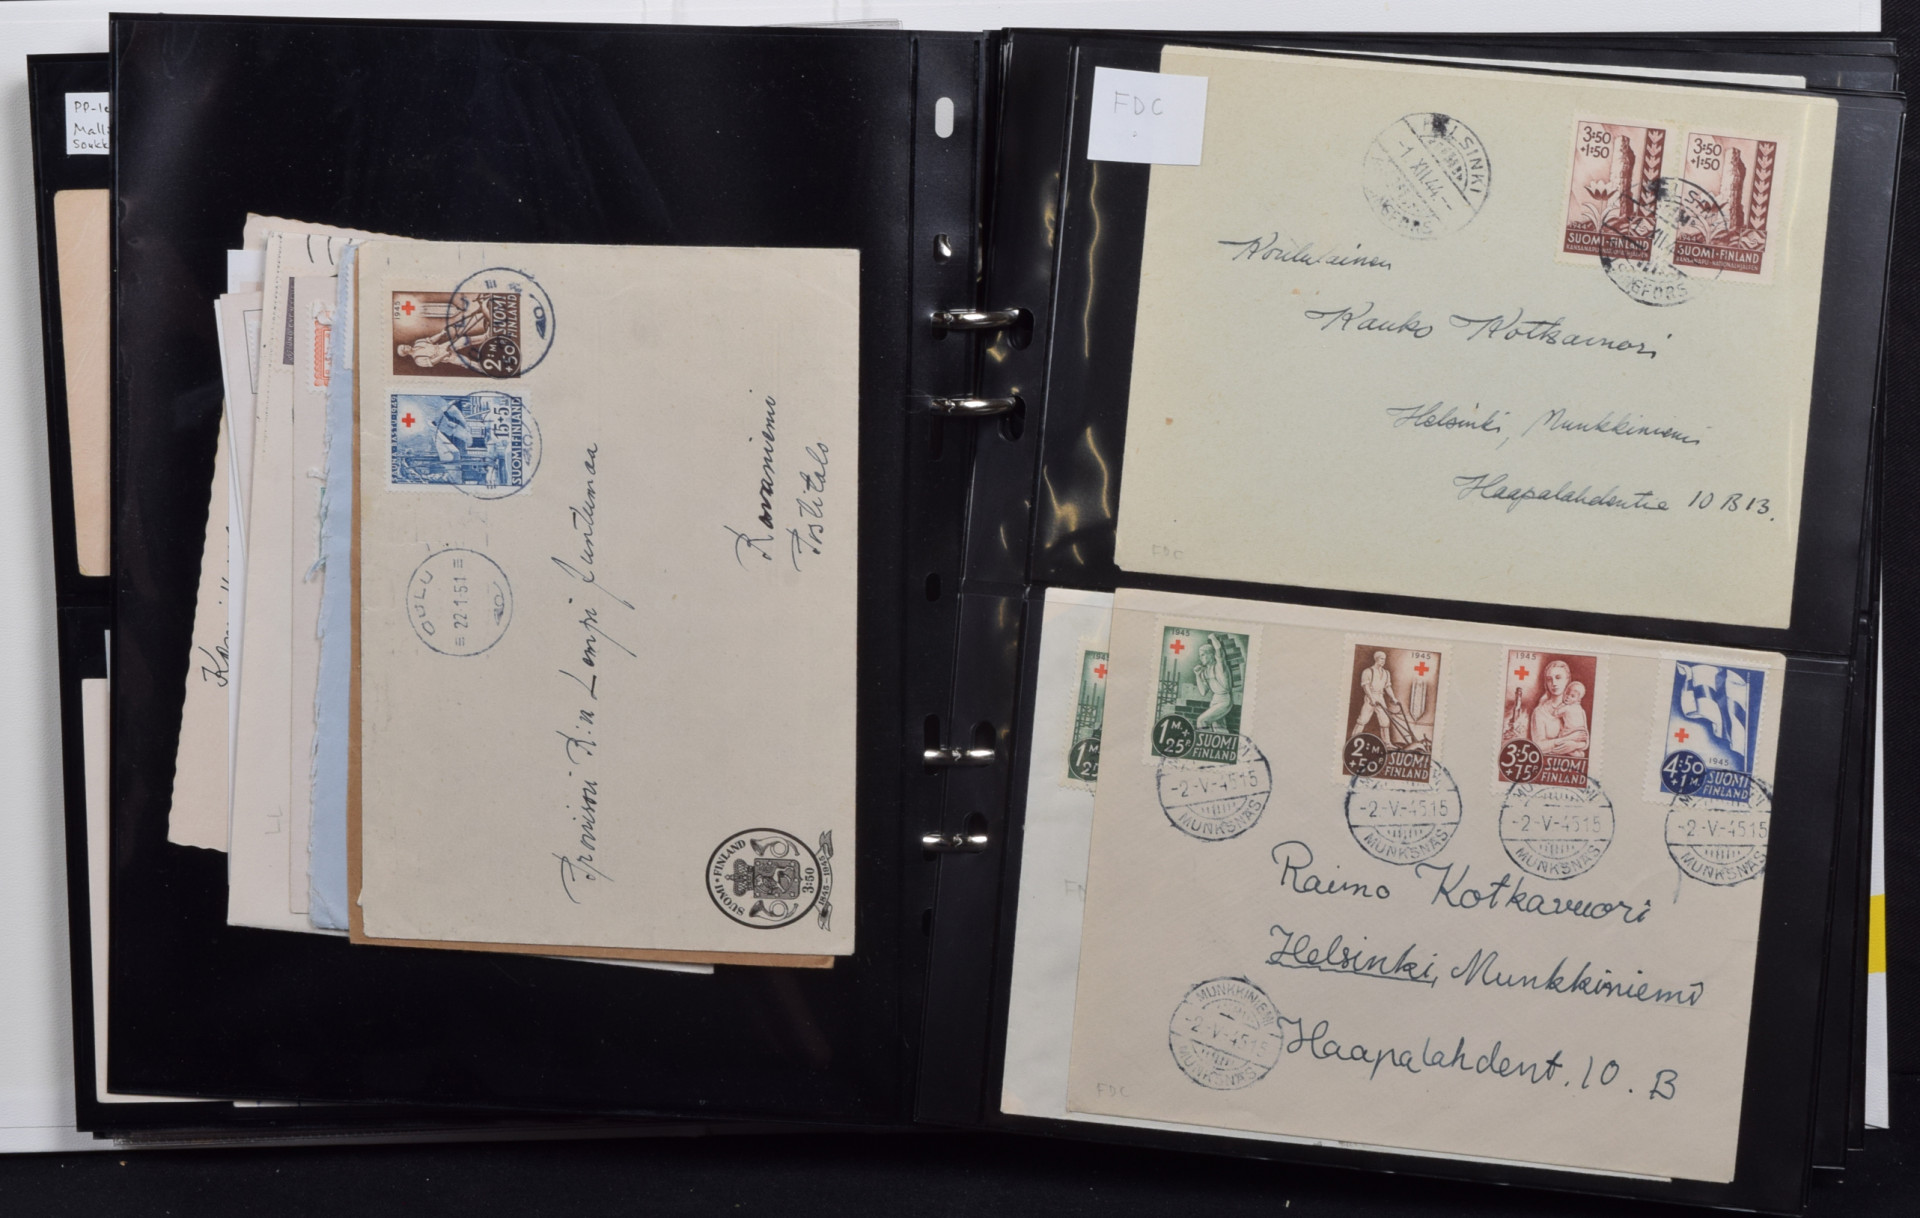 PP-le
Mall
Soukk
1945
2:M.
+50P
SUOMI
FINLAND
15+5
SUOMI-FINLAND
OULU
22.1.51
Proviisori R:a Lempi Juntunen
Rovaniemi
Postitalo
SUOMI • FINLAND
3:50
1845-1945
FDC
HELSINKI
-1.XII.44--
3:50
+1:50
1944
SUOMI-FINLAND
3:50
+1:50
1944
SUOMI-FINLAND
Kauko Kotkavuori
Helsinki, Munkkiniemi
Haapalahdentie 10 B 13.
FDC
1945
1M
25
1945
1M+
25P
SUOMI
FINLAND
1945
2:M.
+50P
SUOMI
FINLAND
1945
3:50
+75P
SUOMI
FINLAND
4:50
+1M.
1945
SUOMI
FINLAND
-2-V-4515
MUNKSNÄS
-2-V-4515
MUNKSNÄS
-2-V-4515
MUNKSNÄS
-2-V-4515
MUNKSNÄS
Raimo Kotkavuori
Helsinki, Munkkiniemi
Haapalahdent. 10. B
MUNKKINIEMI
-2-V-4515
MUNKSNÄS
FDC